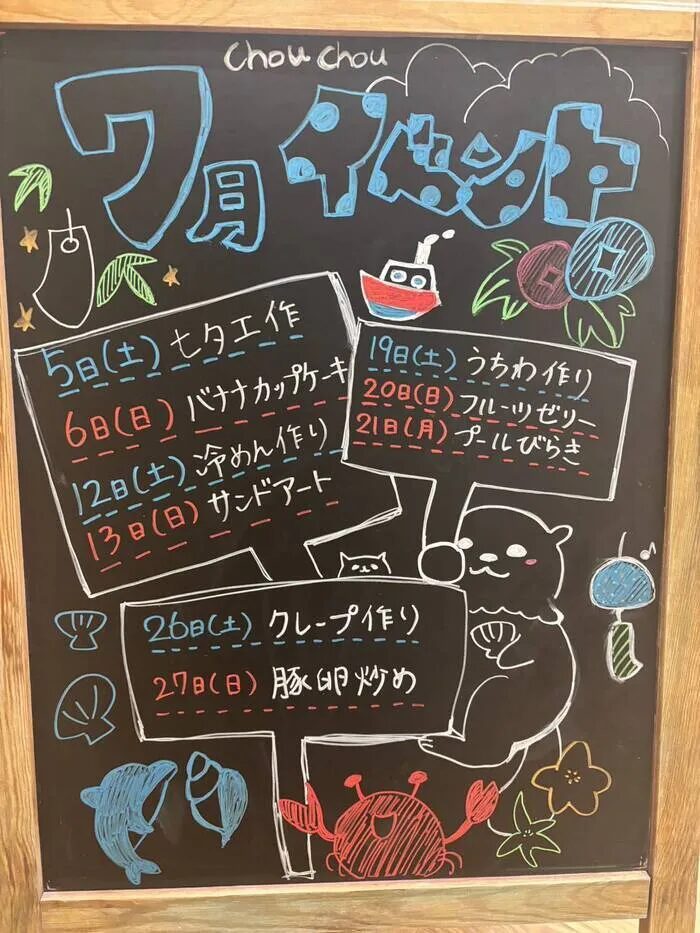 chou chou
7月 イベント
5日(土) 七夕工作
6日(日) バナナカップケーキ
12日(土) 冷めん作り
13日(日) サンドアート
19日(土) うちわ作り
20日(日) フルーツゼリー
21日(月) プールびらき
26日(土) クレープ作り
27日(日) 豚卵炒め